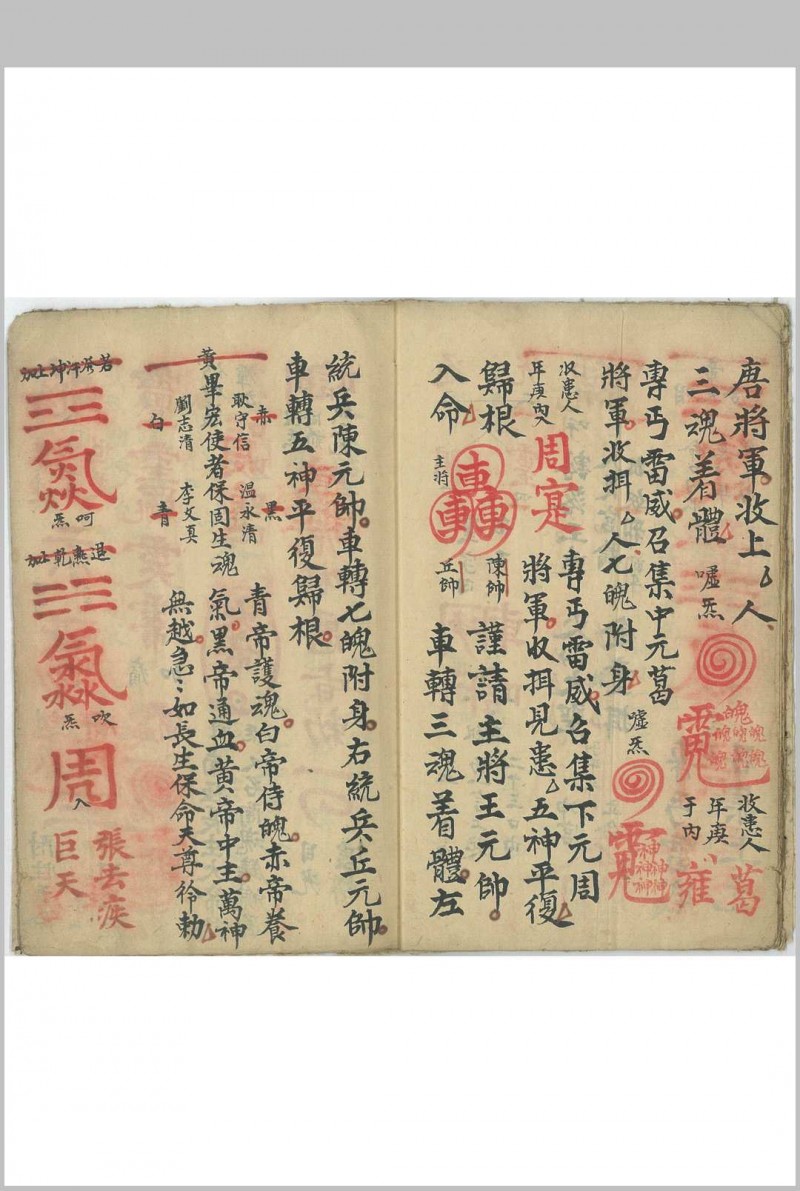 唐將軍收上厶人
三魂着體
噓炁
魄魄魄魄魄魄魄
收患人
年庚
于內
葛
雍
專丐雷威召集中元葛
將軍收捐厶人七魄附身
噓炁
神神神神神
專丐雷威召集下元周
將軍收捐見患厶五神平復
收患人
年庚內
周寔
歸根
車車車
陳帥
謹請主將王元帥
入命
主將
丘帥
車轉三魂着體左
統兵陳元帥車轉七魄附身右統兵丘元帥
車轉五神平復歸根
赤
黑
耿守信
溫永清
黃
畢宏使者保固生魂
劉志清
李文真
白
青
青帝護魂白帝侍魄赤帝養
氣黑帝通血黃帝中主萬神
無越急急如長生保命天尊律勑
加坤
呵炁
退熱乾加
吹炁
周
入
張去疾
巨天